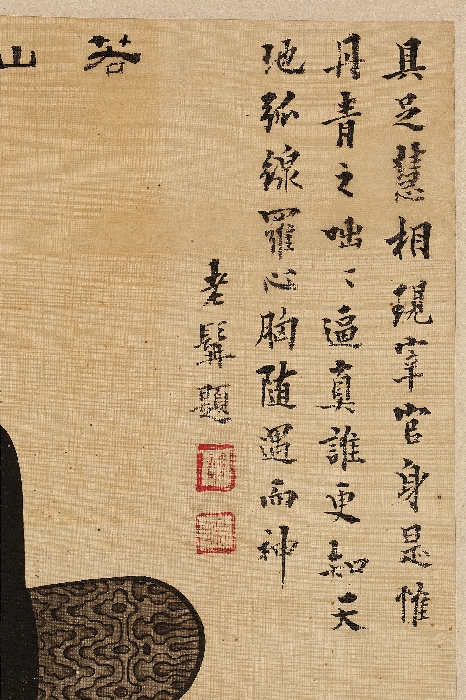 具足慧相現宰官身是惟
丹青之咄〻逼真誰更知天
弛弧線羅心胸随遇而神
老髯題
若山